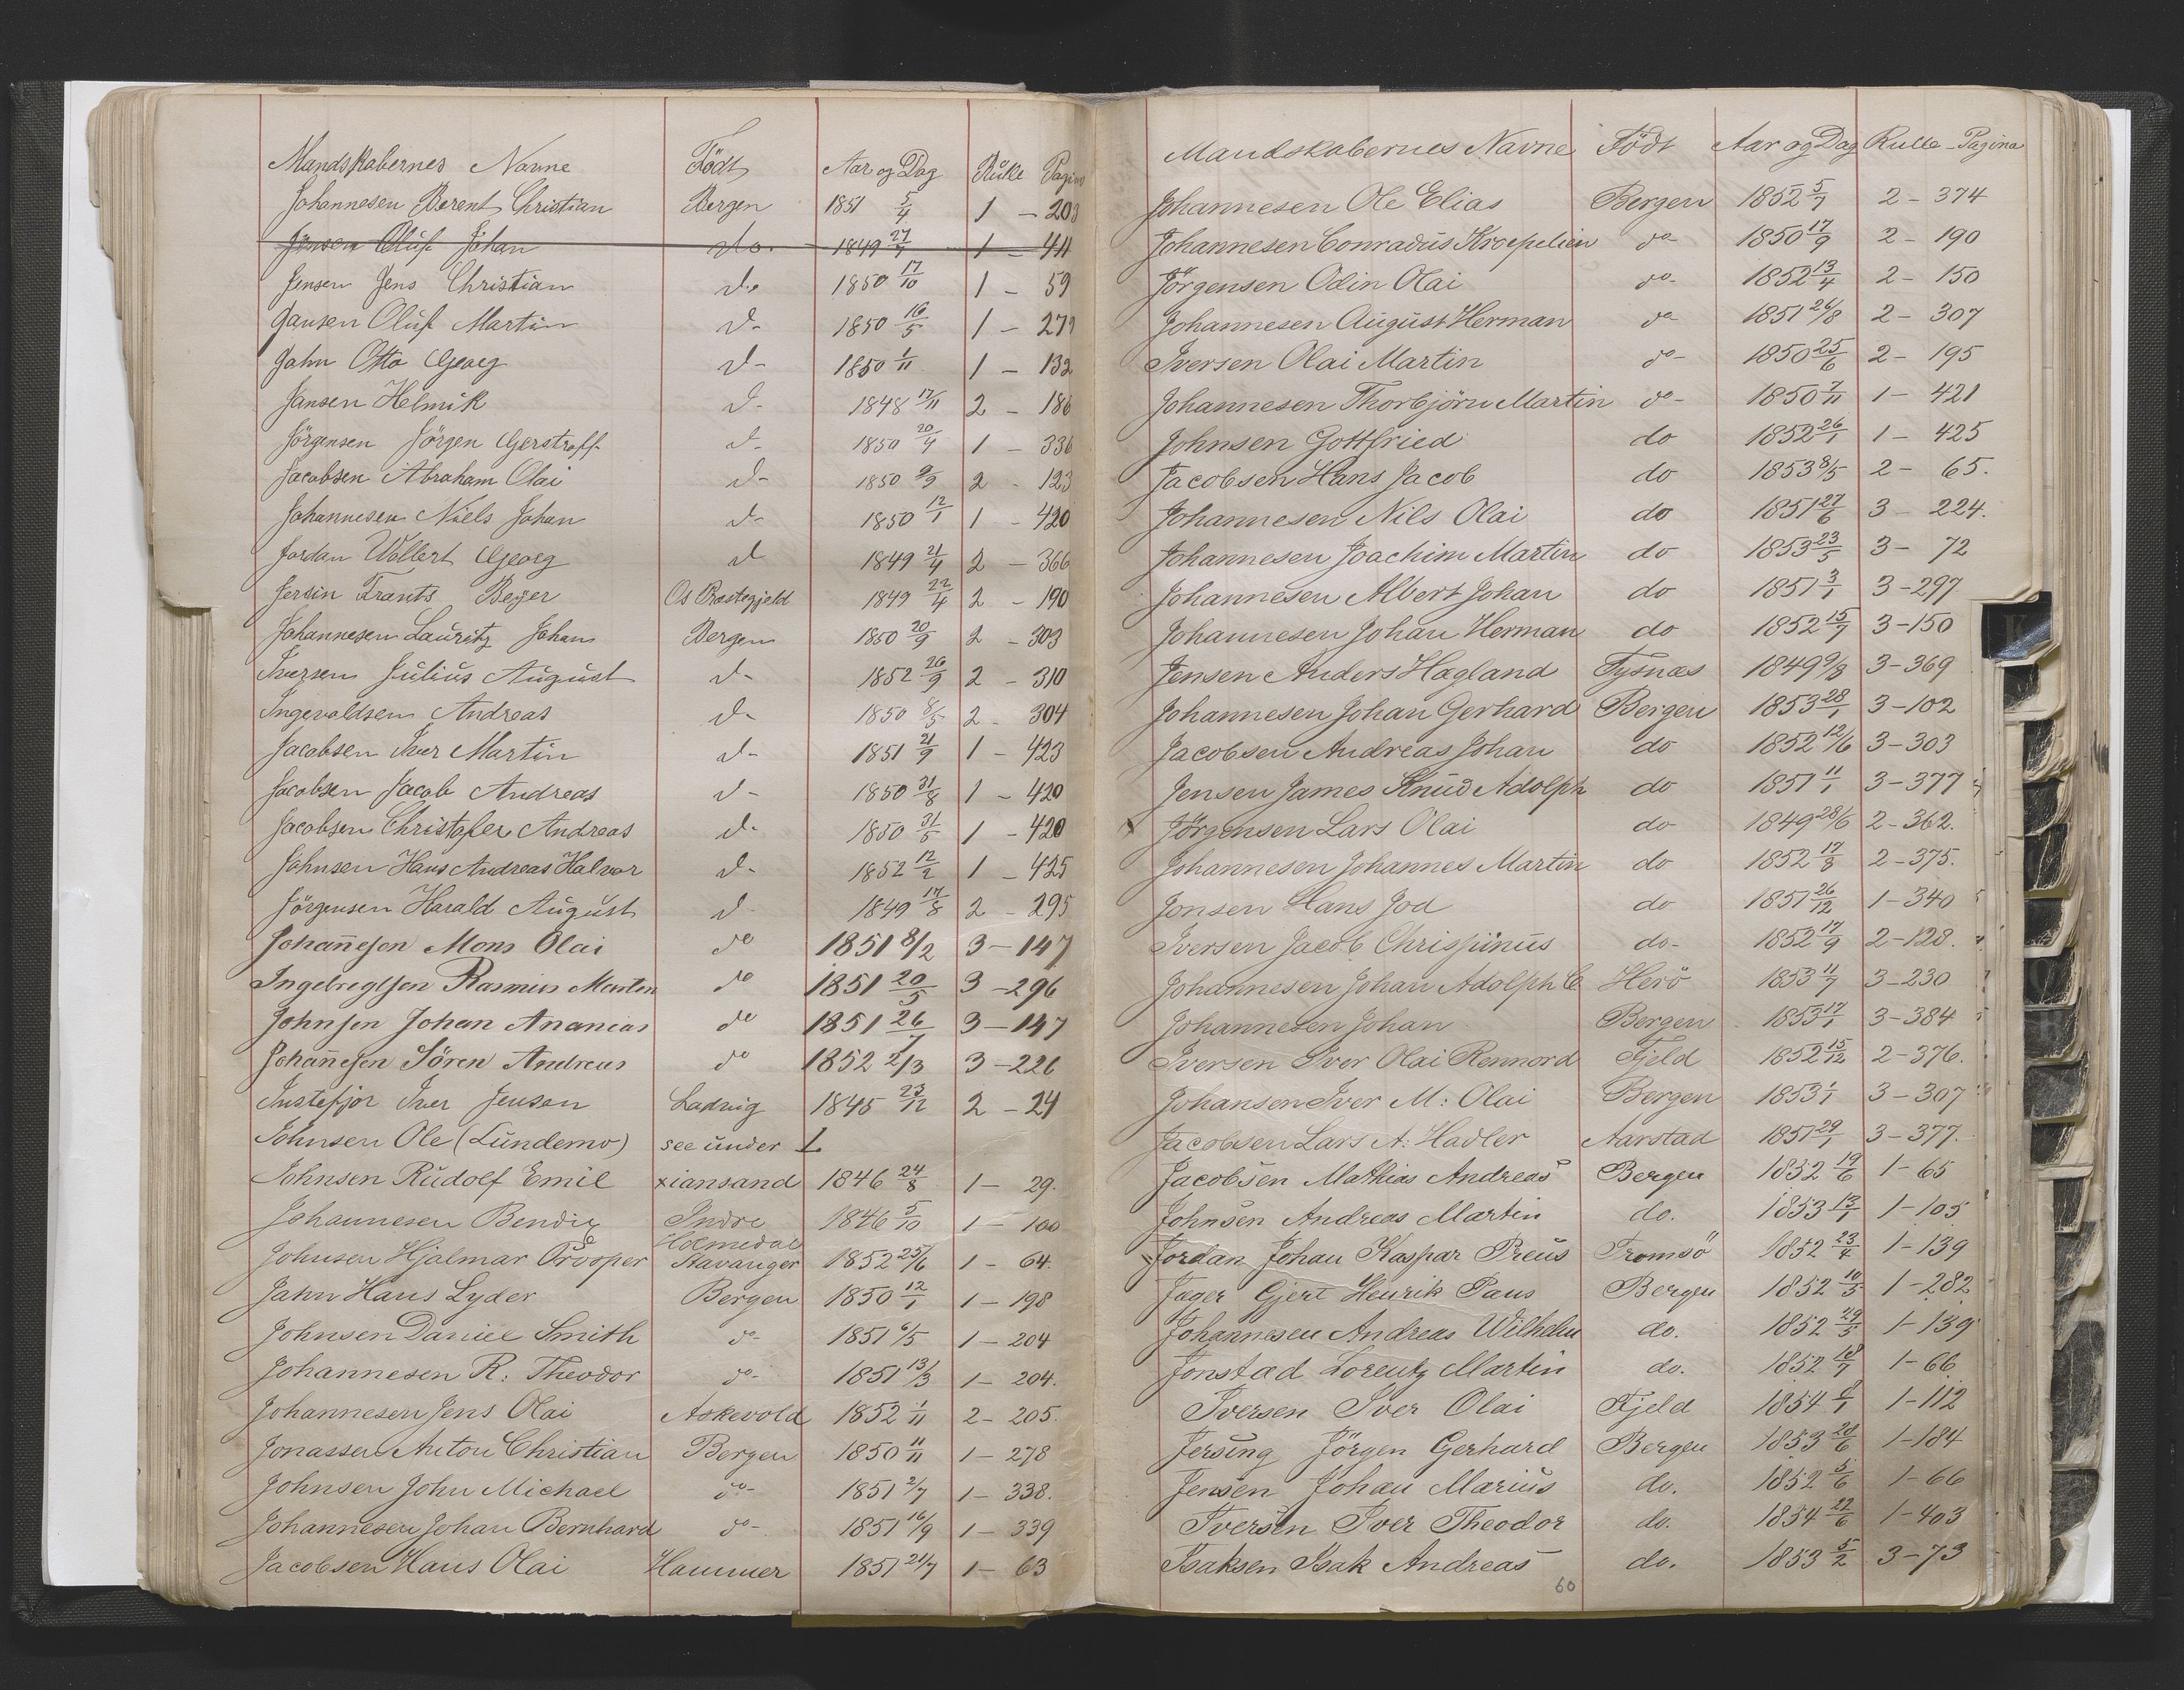 Mandskabernes Navne Födt Aar og Dag Rulle Pagina
Johannesen Berent Christian Bergen 1851 5/4 1 - 203
Jensen Oluf Johan do. 1849 27/7 1 - 411
Jensen Jens Christian do 1850 17/10 1 - 59
Jansen Oluf Martin d- 1850 16/5 1 - 279
Jahn Otto Georg d- 1850 1/11 1 - 132
Jansen Helmik d- 1848 17/11 2 - 186
Jörgensen Jörgen d- 1850 20/4 1 - 336
Jacobsen Abraham Olai d- 1850 9/9 2 - 123
Johannesen Niels Johan d- 1850 12/1 1 - 420
Jordan Wollert Georg d 1849 21/4 2 - 366
Jersin Frants Beyer Os Præstegjeld 1849 22/4 2 - 190
Johannesen Lauritz Johan Bergen 1850 20/9 2 - 303
Iversen Julius August d- 1852 26/9 2 - 310
Ingevaldsen Andreas d- 1850 8/5 2 - 304
Jacobsen Iver Martin d- 1851 21/9 1 - 423
Jacobsen Jacob Andreas d- 1850 31/8 1 - 420
Jacobsen Christofer Andreas d- 1850 31/5 1 - 420
Johnsen Hans Andreas Halvor d- 1852 12/2 1 - 425
Jörgensen Harald August d 1849 17/8 2 - 295
Johan̄esen Mons Olai do 1851 8/2 3 - 147
Ingebregtsen Rasmus Martin do 1851 20/5 3 - 296
Johnsen Johan Ananias do 1851 26/7 3 - 147
Johan̄esen Sören Andreas do 1852 2/3 3 - 226
Instefjor Iver Jensen Ladvig 1845 23/12 2 - 24
Johnsen Ole (Lundemo) see under L
Johnsen Rudolf Emil xiansand 1846 24/8 1 - 29.
Johannesen Bendix Indre Holmedal 1846 5/10 1 - 100
Johnsen Hjalmar Prosper Stavanger 1852 25/6 1 - 64.
Jahn Hans Lyder Bergen 1850 12/1 1 - 198
Johnsen Daniel Smith do- 1851 6/5 1 - 204
Johannesen R. Theodor do- 1851 13/3 1 - 204.
Johannesen Jens Olai Askevold 1852 1/11 2 - 205.
Jonassen Anton Christian Bergen 1850 11/11 1 - 278
Johnsen John Michael do- 1851 2/7 1 - 338.
Johannesen Johan Bernhard do- 1851 16/9 1 - 339
Jacobsen Hans Olai Hammer 1851 21/7 1 - 63
Mandskabernes Navne Födt Aar og Dag Rulle - Pagina
Johannesen Ole Elias Bergen 1852 5/7 2 - 374
Johannesen Conradus Kroepelien do- 1850 17/9 2 - 190
Jörgensen Odin Olai do- 1852 13/4 2 - 150
Johannesen August Herman do- 1851 26/8 2 - 307
Iversen Olai Martin do- 1850 25/6 2 - 195
Johannesen Thorbjörn Martin do- 1850 7/11 1 - 421
Johnsen Gottfried do 1852 26/1 1 - 425
Jacobsen Hans Jacob do 1853 8/5 2 - 65.
Johannesen Nils Olai do 1851 27/6 3 - 224.
Johannesen Joachim Martin do 1853 23/5 3 - 72
Johannesen Albert Johan do 1851 3/1 3 - 297
Johannesen Johan Herman do 1852 15/7 3 - 150
Jensen Anders Hagland Tysnæs 1849 9/8 3 - 369
Johannesen Johan Gerhard Bergen 1853 28/1 3 - 102
Jacobsen Andreas Johan do 1852 12/6 3 - 303
Jensen James Knud Adolph do 1851 11/1 3 - 377
x Jörgensen Lars Olai do 1849 28/6 2 - 362.
Johannesen Johannes Martin do 1852 17/8 2 - 375.
Jonsen Hans Jod do 1851 26/12 1 - 340
Iversen Jacob Chrispinus do- 1852 17/9 2 - 128.
Johannesen Johan Adolph C Herö 1853 11/7 3 - 230
Johannesen Johan Bergen 1853 17/1 3 - 384
Iversen Iver Olai Rennord Fjeld 1852 15/12 2 - 376.
Johansen Iver M: Olai Bergen 1853 1/1 3 - 307
Jacobsen Lars A. Hadler Aarstad 1851 29/1 3 - 377.
Jacobsen Mathias Andreas Bergen 1852 19/6 1 - 65
Johnsen Andreas Martin do. 1853 13/1 1 - 105
Jordan Johan Kaspar Preus Tromsö 1852 23/4 1 - 139
Jager Gjert Henrik Paus Bergen 1852 10/5 1 - 282
Johannesen Andreas Wilhelm do. 1852 29/5 1 - 139
Jonstad Lorentz Martin do. 1852 18/7 1 - 66
Iversen Iver Olai Fjeld 1854 6/1 1 - 112
Jersing Jörgen Gerhard Bergen 1853 20/6 1 - 184
Jensen Johan Marius do. 1852 5/6 1 - 66
Iversen Iver Theodor do. 1854 22/6 1 - 403
Isaksen Isak Andreas do. 1853 5/2 3 - 73
60
K